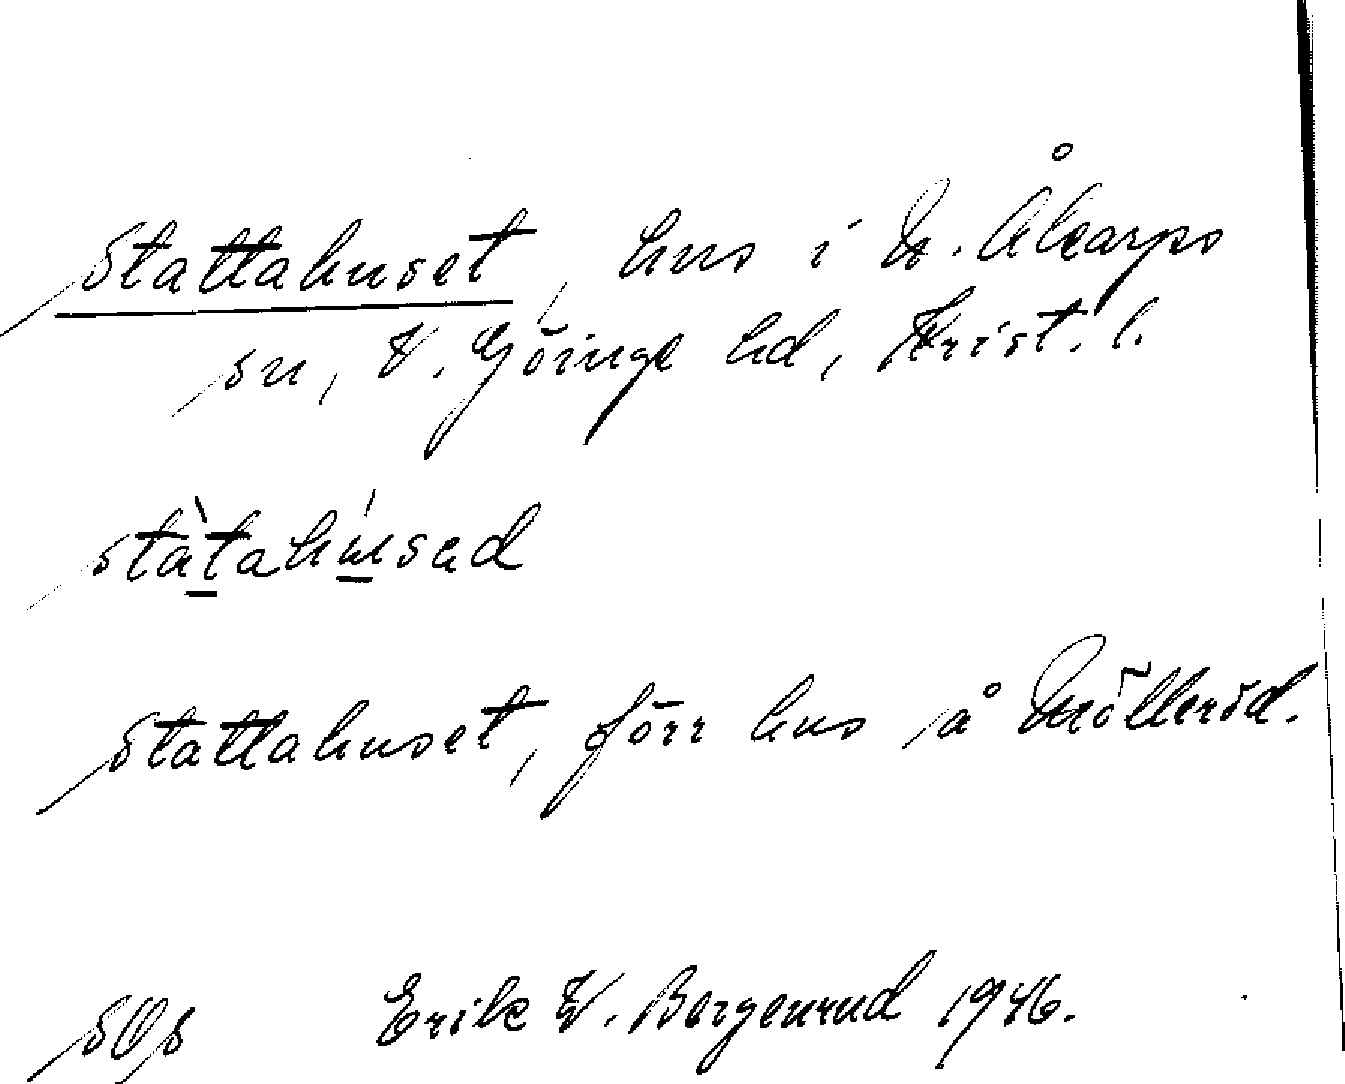 Stattahuset, hus i N. Åkarps
sn, V. Göinge hd, Krist. l.
stàtahúsəd
Stattahuset, förr hus å Mölleröd.
Erik W. Borgenrud 1946.